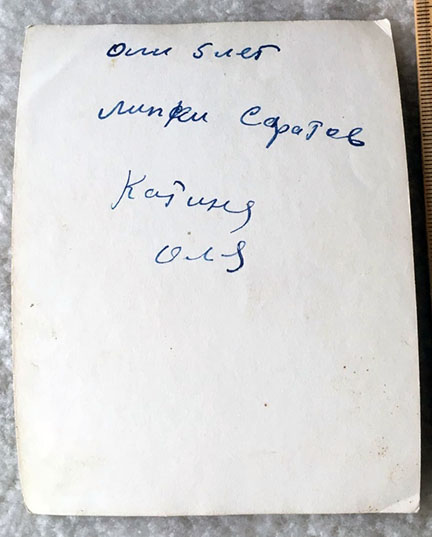 Оли 5 лет
Липки Саратов
Катиня
Оля